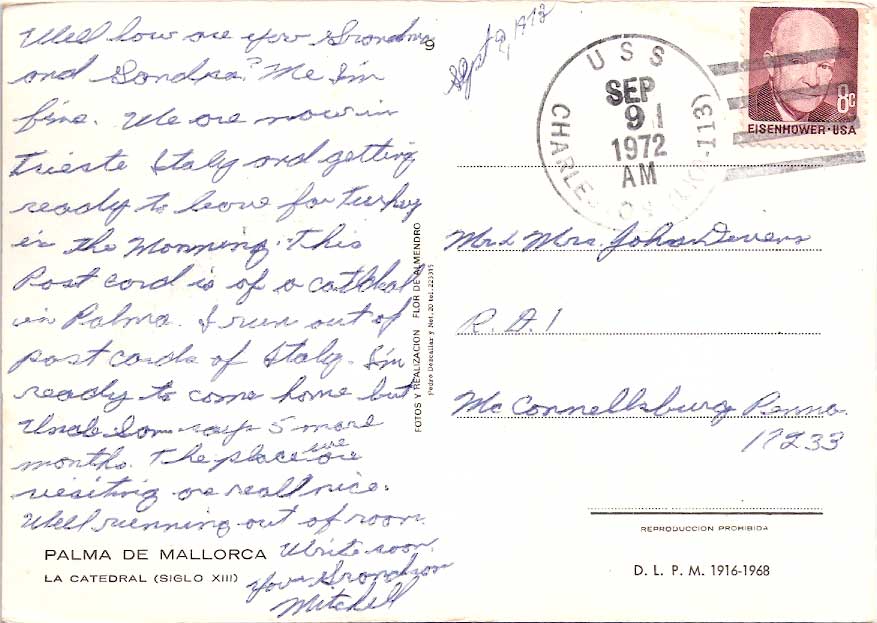 Well how are you Grandma
and Sandra? Me I'm
fine. We are now in
Trieste Italy and getting
ready to leave for Turkey
in the Morning. This
Post card is of a cathdral
in Palma. I run out of
post cards of Italy. I'm
ready to come home but
Uncle Sam says 5 more
months. The place we are
visiting are reall nice.
Well running out of room.
Write soon.
Your Grandson
Mitchell
PALMA DE MALLORCA
LA CATEDRAL (SIGLO XIII)
9
FOTOS Y REALIZACION FLOR DE ALMENDRO
Pedro Dezcallar y Net, 20 tel. 223315
Sept 9, 1972
USS
CHARLESTON (113)
SEP
91
1972
AM
8c
EISENHOWER·USA
Mr & Mrs. John Devers
R. D. 1
Mc Connellsburg Penna.
17233
REPRODUCCION PROHIBIDA
D. L. P. M. 1916-1968